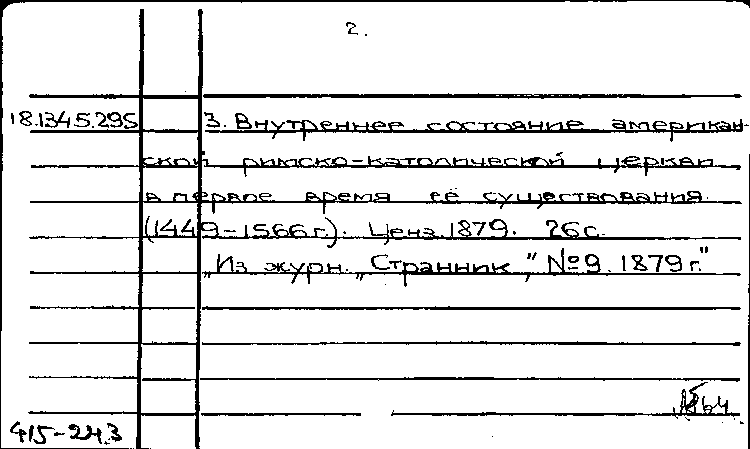 2.
18.1345.295 3. Внутреннее состояние американ-
ской римско-католической церкви
в первое время её существования.
(1449-1566 г.). Ценз. 1879. 26 с.
„Из журн. „Странник”, №9. 1879 г.”
64
415-243